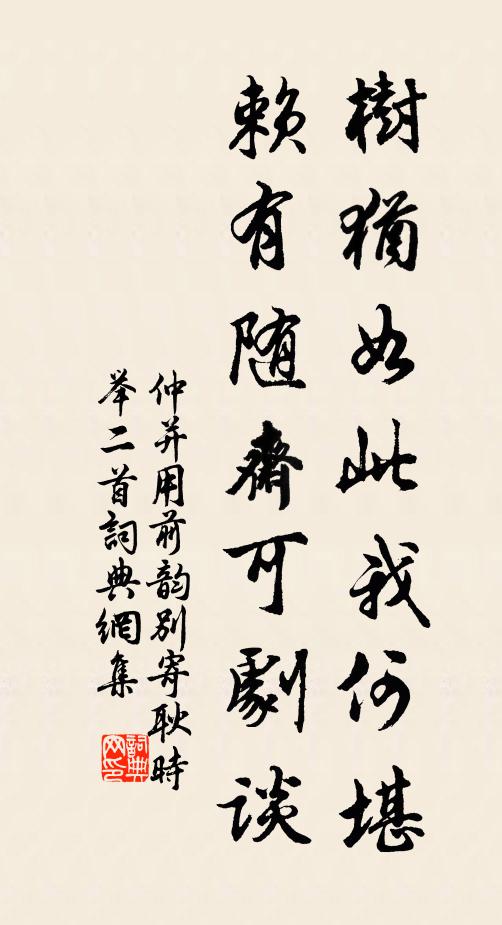 樹猶如此我何堪
賴有随齋可劇談
仲并用前韵别寄耿時
举二首詞典網集
詞典網印